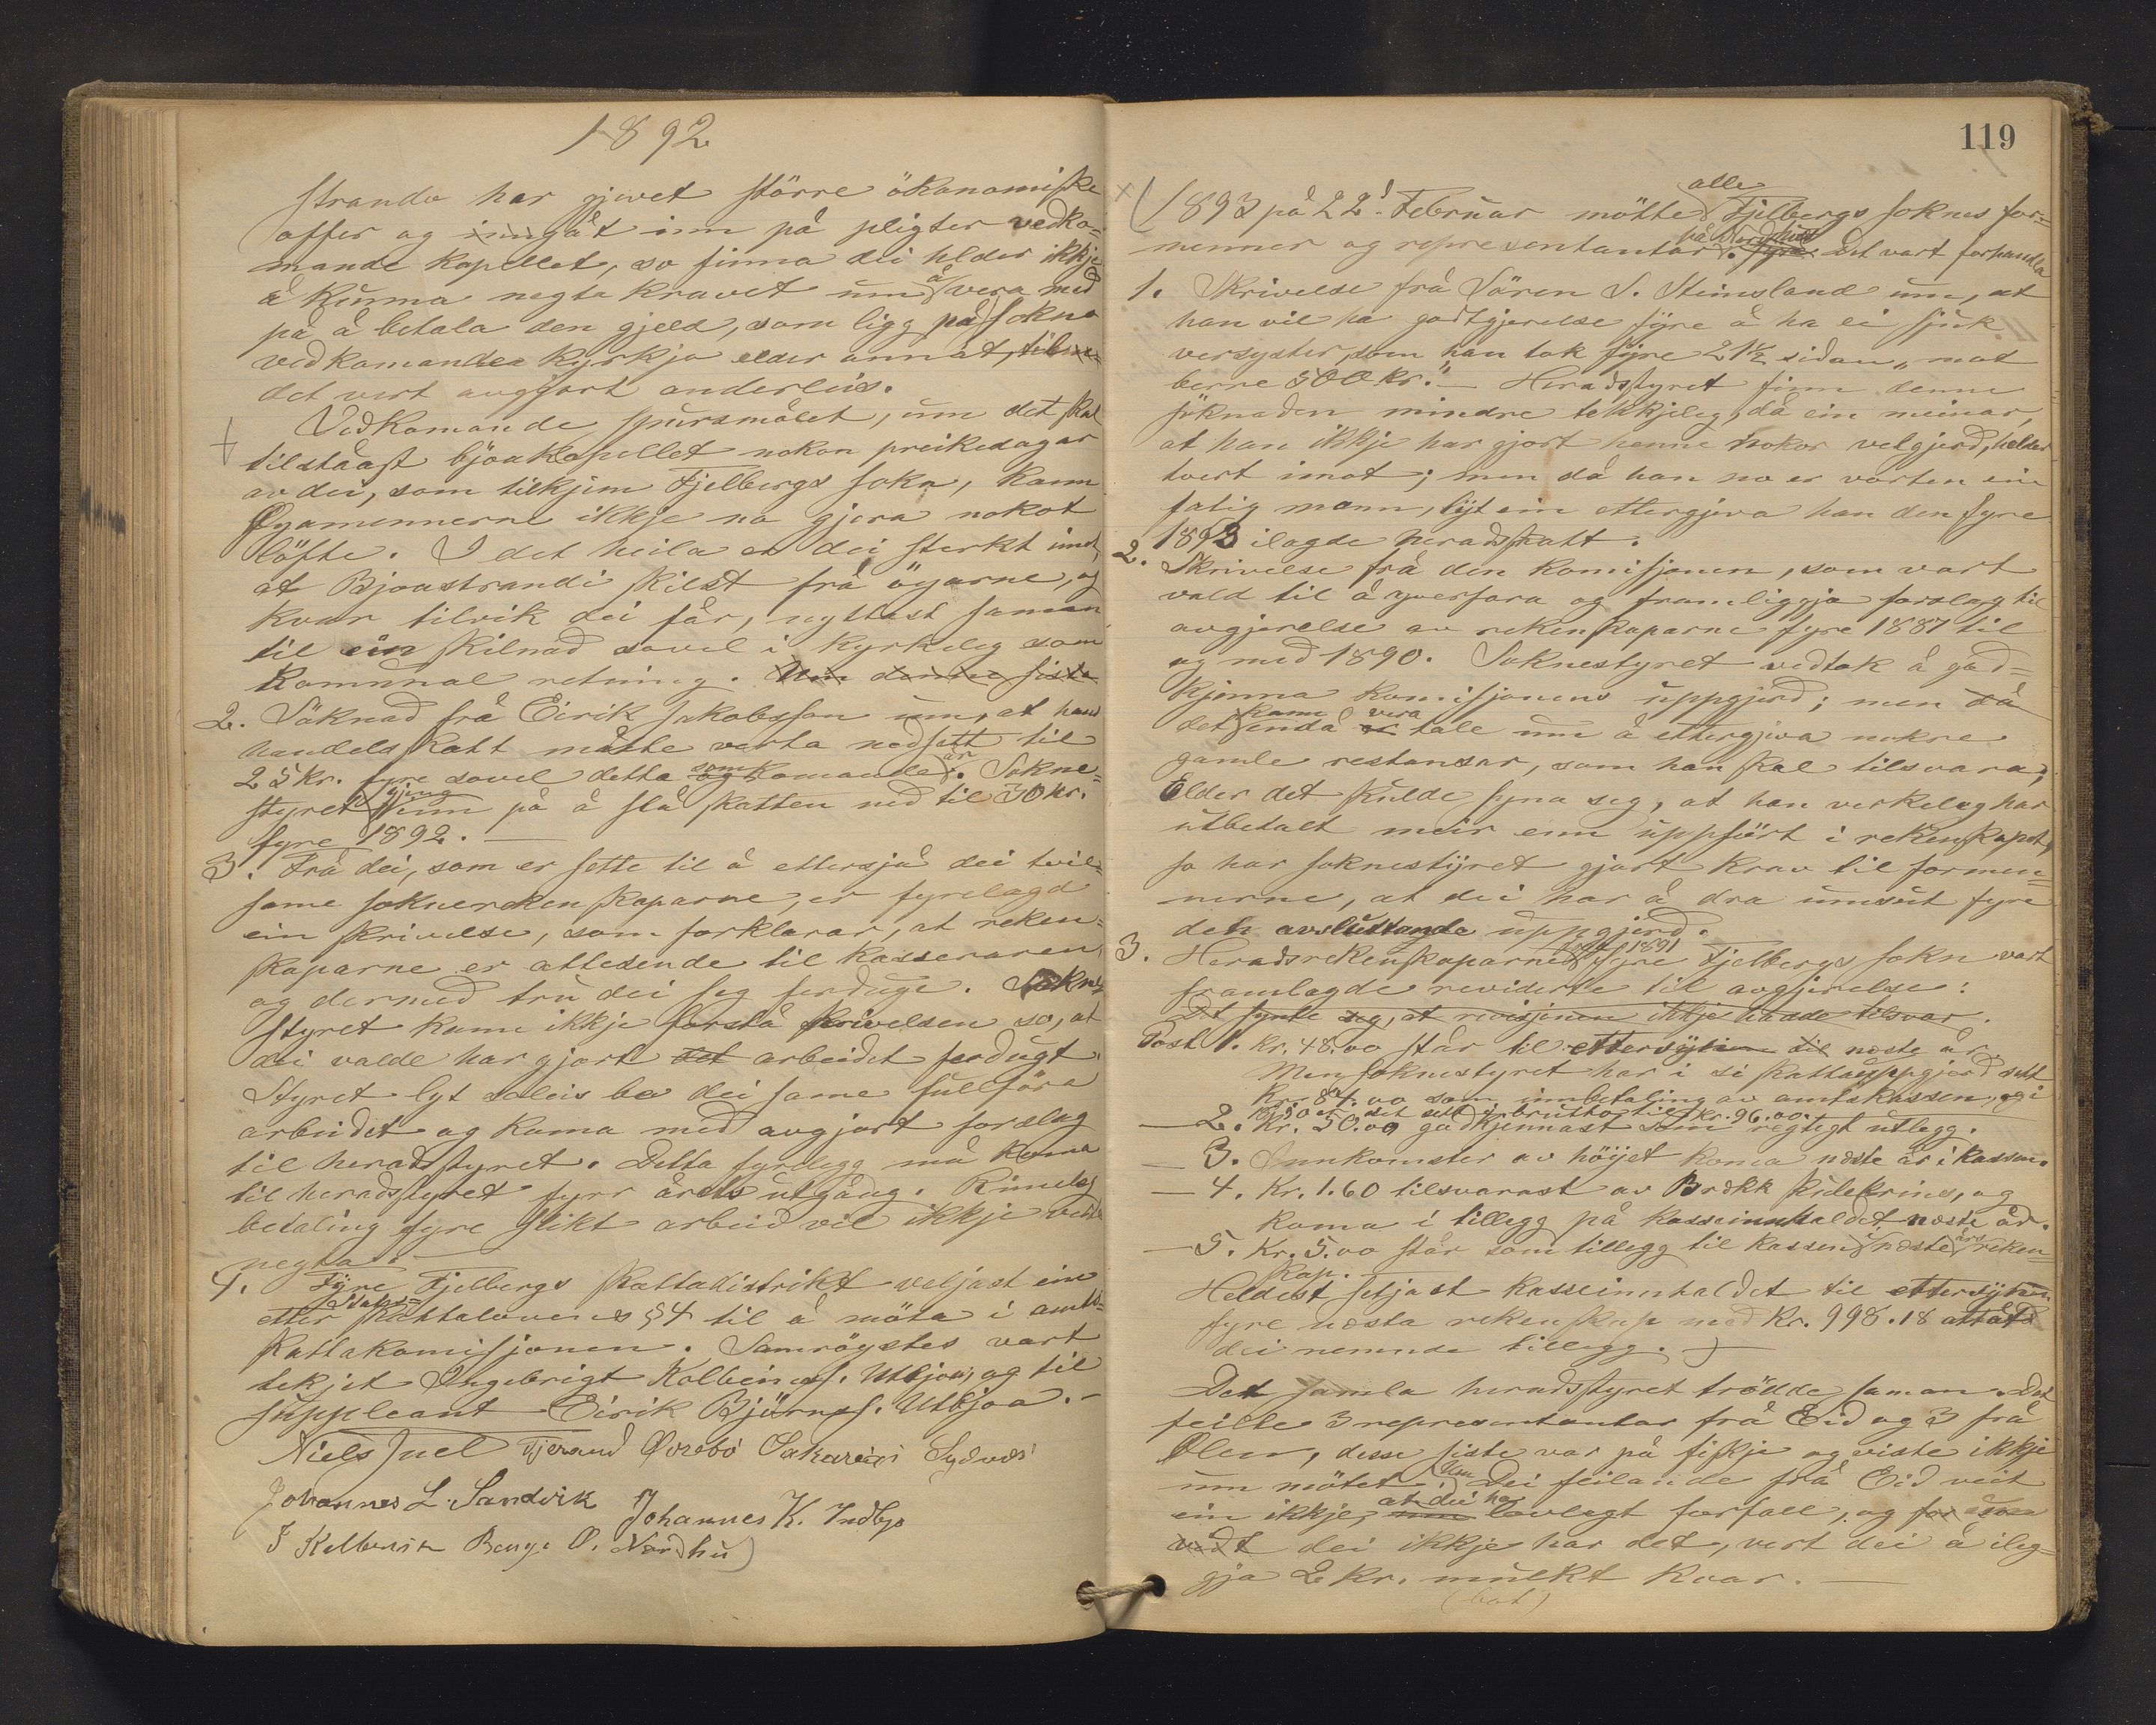 1892
stranda har gjevet större ökonomiske
offer og inngåt inn på pligter vedko-
mande kapellet, so finna dei helder ikkje
å kunna negta kravet um å vera med
på å betala den gjeld, som ligg på sokna
vedkomandes kyrkja elder annat,
det vert avgjort anderleis.
Vedkomande spursmålet, um det skal
tilståast bjoakapellet nokon preikedagar
av dei, som tilkjem Fjelbergs sokn, kann
Øyamennerne ikkje no gjera nokot
löfte. I det heila er dei sterkt imot,
at Bjoastrandi skilst frå öyarne, og
kvar tilvik dei får, nyttast saman
til ein skilnad sovel i kyrkeleg som
kommunal retning. Um denne siste
2. Söknad frå Eirik Jakobsson um, at hans
handelsskatt måtte verta nedsett til
25 kr. fyre sovel detta som komande år. Sokne-
styret gjeng inn på å slå skatten ned til 30 kr.
fyre 1892.
3. Frå dei, som er sette til å ettersjå dei tvil-
same soknerekenskaparne, er fyrelagd
ein skrivelse, som forklarar, at reken-
skaparne er attesende til kasseraren,
og dermed tru dei seg ferduge. Sokne-
styret kunn ikkje forstå skrivelsen so, at
dei valde har gjort det arbeidet ferdugt.
Styret lyt soleis be dei same fullföra
arbeidet og koma med avgjort forslag
til heradsstyret. Detta fyrelegg må koma
til heradsstyret fyrr årets utgång. Rimeleg
betaling fyre slikt arbeid vil ikkje verta
negta.
4. Fyre Fjelbergs skattadistrikt veljast ein
etter Stats-skattalovens § 4 til å möta i amts-
skattakomisjonen. Samröystes vart
tekjet Ingebrigt Kolbeinss. Utbjoa, og til
suppleant Eirik Björnss. Utbjoa.
Niels Juel Tjerand Øvrebö Sakarias Sydnes
Johannes L. Sandvik Johannes K. Indbjo
I Kolbeinsen Beng. O. Nordhu
119
1893 på 22. Februar mötte alle Fjelbergs soknes for-
menner og representantar på Nordhus. Det vart forhandla
1. Skrivelse frå Sören S. Steinsland um, at
han vil ha godtgjerelse fyre å ha ei sjuk
versyster, som han tok fyre 21½ sidan „mot
berre 500 kr." — Heradsstyret finn denne
söknaden mindre tekkjeleg, då ein meinar,
at han ikkje har gjort henne nokor velgjerd, helder
tvert imot; men då han no er vorten ein
fatig mann, lyt ein ettergjeva han den fyre
1893 ilagde heradsskatt.
2. Skrivelse frå den komisjonen, som vart
vald til å yverfara og framleggja forslag til
avgjerelse av rekenskaparne fyre 1887 til
og med 1890. Soknestyret vedtok å god-
kjenna komisjonens uppgjerd; men då
det kann enda vera tale um å ettergjeva nokre
gamle restansar, som han skal tilsvara,
Elder det skulde syna seg, at han verkeleg har
utbetalt meir enn uppfört i rekenskapet,
so har soknestyret gjort krav til formen-
nerne, at dei har å dra umsut fyre
den avsluttande uppgjerd.
3. Heradsrekenskaparne fyre 1891 fyre Fjelbergs sokn vart
framlagde reviderte til avgjerelse:
Det synte seg, at revisjonen ikkje hadde tilsvar.
Post 1. Kr. 48.00 står til ettersyn til neste år.
Men soknestyret har i si skattauppgjerd sett
Kr. 84.00 som innbetaling av amtskassen, og i
— 2. Kr. 50.00 godkjennast som regtigt utlegg.
— 3. Innkomster av höijet koma neste år i kassen.
— 4. Kr. 1.60 tilsvarast av Brekk skulekrins, og
koma i tillegg på kasseinnhaldet neste år.
— 5. Kr. 5.00 står som tillegg til kassen i neste års reken-
skap.
Heldest setjast kasseinnhaldet til ettersyn
fyre nesta rekenskap med kr. 998.18 attåt
dei nemnde tillegg.
Det samla heradsstyret trödde saman. Det
feilte 3 representantar frå Eid og 3 frå
Ølen, desse siste var på fiskje og viste ikkje
um mötet. Um dei feilande frå Eid veit
ein ikkje, at dei ha lovlegt forfall, og for som
vidt dei ikkje har det, vert dei å ileg-
gja 2 kr. mulkt kvar.
(bot)